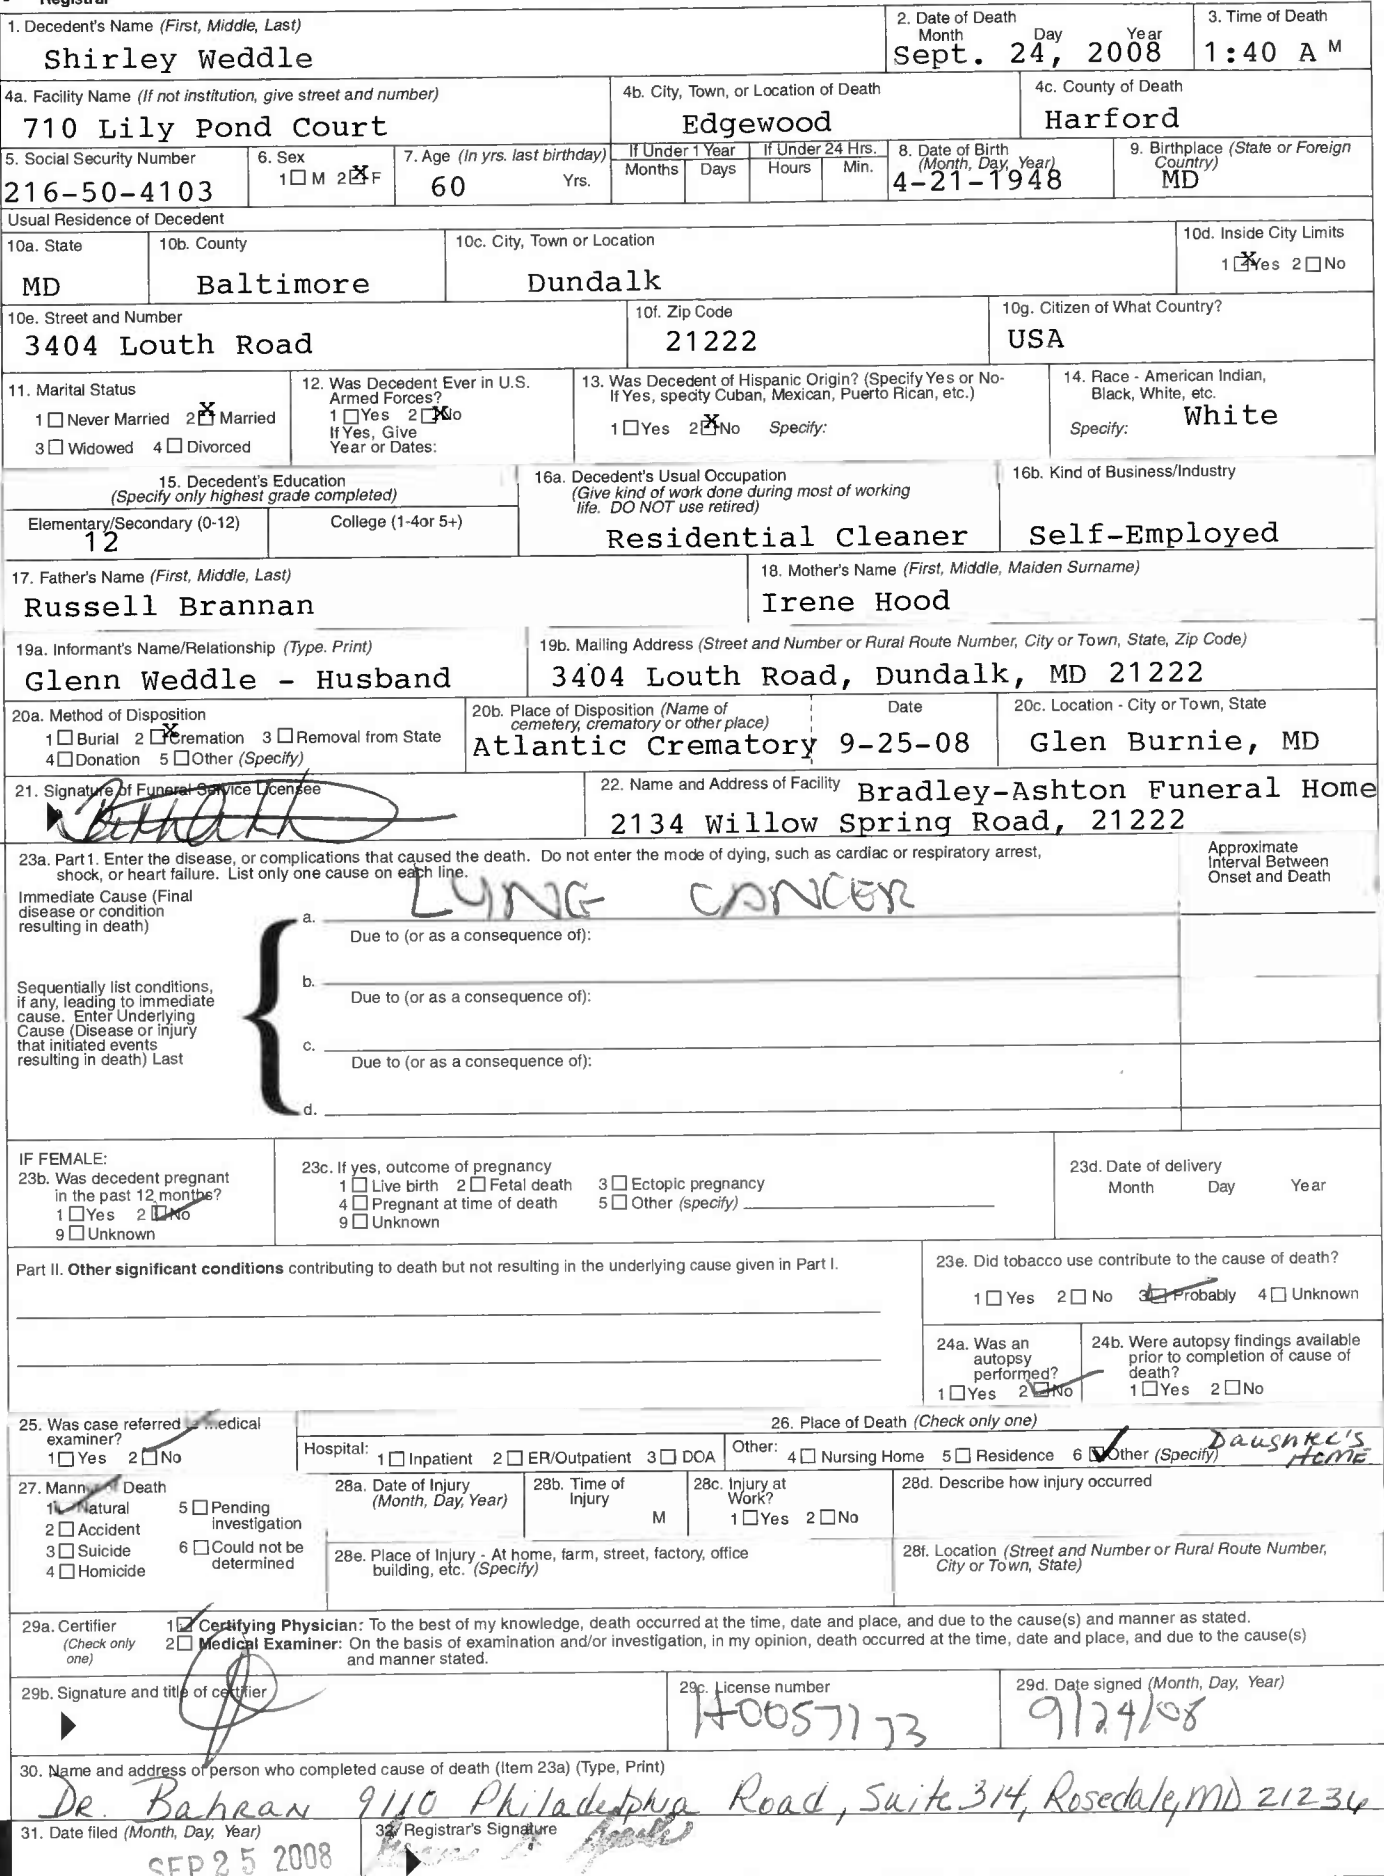 Registrar
1. Decedent's Name (First, Middle, Last)
Shirley Weddle
2. Date of Death
Month Day Year
Sept. 24, 2008
3. Time of Death
1:40 A M
4a. Facility Name (If not institution, give street and number)
710 Lily Pond Court
4b. City, Town, or Location of Death
Edgewood
4c. County of Death
Harford
5. Social Security Number
216-50-4103
6. Sex
1 □ M 2 ☒ F
7. Age (In yrs. last birthday)
60 Yrs.
If Under 1 Year
Months Days
If Under 24 Hrs.
Hours Min.
8. Date of Birth
(Month, Day, Year)
4-21-1948
9. Birthplace (State or Foreign
Country)
MD
Usual Residence of Decedent
10a. State
MD
10b. County
Baltimore
10c. City, Town or Location
Dundalk
10d. Inside City Limits
1 ☒ Yes 2 □ No
10e. Street and Number
3404 Louth Road
10f. Zip Code
21222
10g. Citizen of What Country?
USA
11. Marital Status
1 □ Never Married 2 ☒ Married
3 □ Widowed 4 □ Divorced
12. Was Decedent Ever in U.S.
Armed Forces?
1 □ Yes 2 ☒ No
If Yes, Give
Year or Dates:
13. Was Decedent of Hispanic Origin? (Specify Yes or No-
If Yes, specify Cuban, Mexican, Puerto Rican, etc.)
1 □ Yes 2 ☒ No Specify:
14. Race - American Indian,
Black, White, etc.
Specify: White
15. Decedent's Education
(Specify only highest grade completed)
Elementary/Secondary (0-12)
12
College (1-4or 5+)
16a. Decedent's Usual Occupation
(Give kind of work done during most of working
life. DO NOT use retired)
Residential Cleaner
16b. Kind of Business/Industry
Self-Employed
17. Father's Name (First, Middle, Last)
Russell Brannan
18. Mother's Name (First, Middle, Maiden Surname)
Irene Hood
19a. Informant's Name/Relationship (Type. Print)
Glenn Weddle - Husband
19b. Mailing Address (Street and Number or Rural Route Number, City or Town, State, Zip Code)
3404 Louth Road, Dundalk, MD 21222
20a. Method of Disposition
1 □ Burial 2 ☒ Cremation 3 □ Removal from State
4 □ Donation 5 □ Other (Specify)
20b. Place of Disposition (Name of
cemetery, crematory or other place)
Atlantic Crematory
Date
9-25-08
20c. Location - City or Town, State
Glen Burnie, MD
21. Signature of Funeral Service Licensee
22. Name and Address of Facility Bradley-Ashton Funeral Home
2134 Willow Spring Road, 21222
23a. Part1. Enter the disease, or complications that caused the death. Do not enter the mode of dying, such as cardiac or respiratory arrest,
shock, or heart failure. List only one cause on each line.
Approximate
Interval Between
Onset and Death
Immediate Cause (Final
disease or condition
resulting in death)
a. LUNG CANCER
Due to (or as a consequence of):
Sequentially list conditions,
if any, leading to immediate
cause. Enter Underlying
Cause (Disease or injury
that initiated events
resulting in death) Last
b.
Due to (or as a consequence of):
c.
Due to (or as a consequence of):
d.
IF FEMALE:
23b. Was decedent pregnant
in the past 12 months?
1 □ Yes 2 ☑ No
9 □ Unknown
23c. If yes, outcome of pregnancy
1 □ Live birth 2 □ Fetal death 3 □ Ectopic pregnancy
4 □ Pregnant at time of death 5 □ Other (specify)
9 □ Unknown
23d. Date of delivery
Month Day Year
Part II. Other significant conditions contributing to death but not resulting in the underlying cause given in Part I.
23e. Did tobacco use contribute to the cause of death?
1 □ Yes 2 □ No 3 ☑ Probably 4 □ Unknown
24a. Was an
autopsy
performed?
1 □ Yes 2 ☑ No
24b. Were autopsy findings available
prior to completion of cause of
death?
1 □ Yes 2 □ No
25. Was case referred to medical
examiner?
1 □ Yes 2 ☑ No
26. Place of Death (Check only one)
Hospital: 1 □ Inpatient 2 □ ER/Outpatient 3 □ DOA
Other: 4 □ Nursing Home 5 □ Residence 6 ☑ Other (Specify) Daughter's
Home
27. Manner of Death
1 ☑ Natural
2 □ Accident
3 □ Suicide
4 □ Homicide
5 □ Pending
investigation
6 □ Could not be
determined
28a. Date of Injury
(Month, Day, Year)
28b. Time of
Injury
M
28c. Injury at
Work?
1 □ Yes 2 □ No
28d. Describe how injury occurred
28e. Place of Injury - At home, farm, street, factory, office
building, etc. (Specify)
28f. Location (Street and Number or Rural Route Number,
City or Town, State)
29a. Certifier
(Check only
one)
1 ☑ Certifying Physician: To the best of my knowledge, death occurred at the time, date and place, and due to the cause(s) and manner as stated.
2 □ Medical Examiner: On the basis of examination and/or investigation, in my opinion, death occurred at the time, date and place, and due to the cause(s)
and manner stated.
29b. Signature and title of certifier
29c. License number
H0057173
29d. Date signed (Month, Day, Year)
9/24/08
30. Name and address of person who completed cause of death (Item 23a) (Type, Print)
Dr. Bahran 9110 Philadelphia Road, Suite 314, Rosedale, MD 21236
31. Date filed (Month, Day, Year)
SEP 25 2008
32. Registrar's Signature